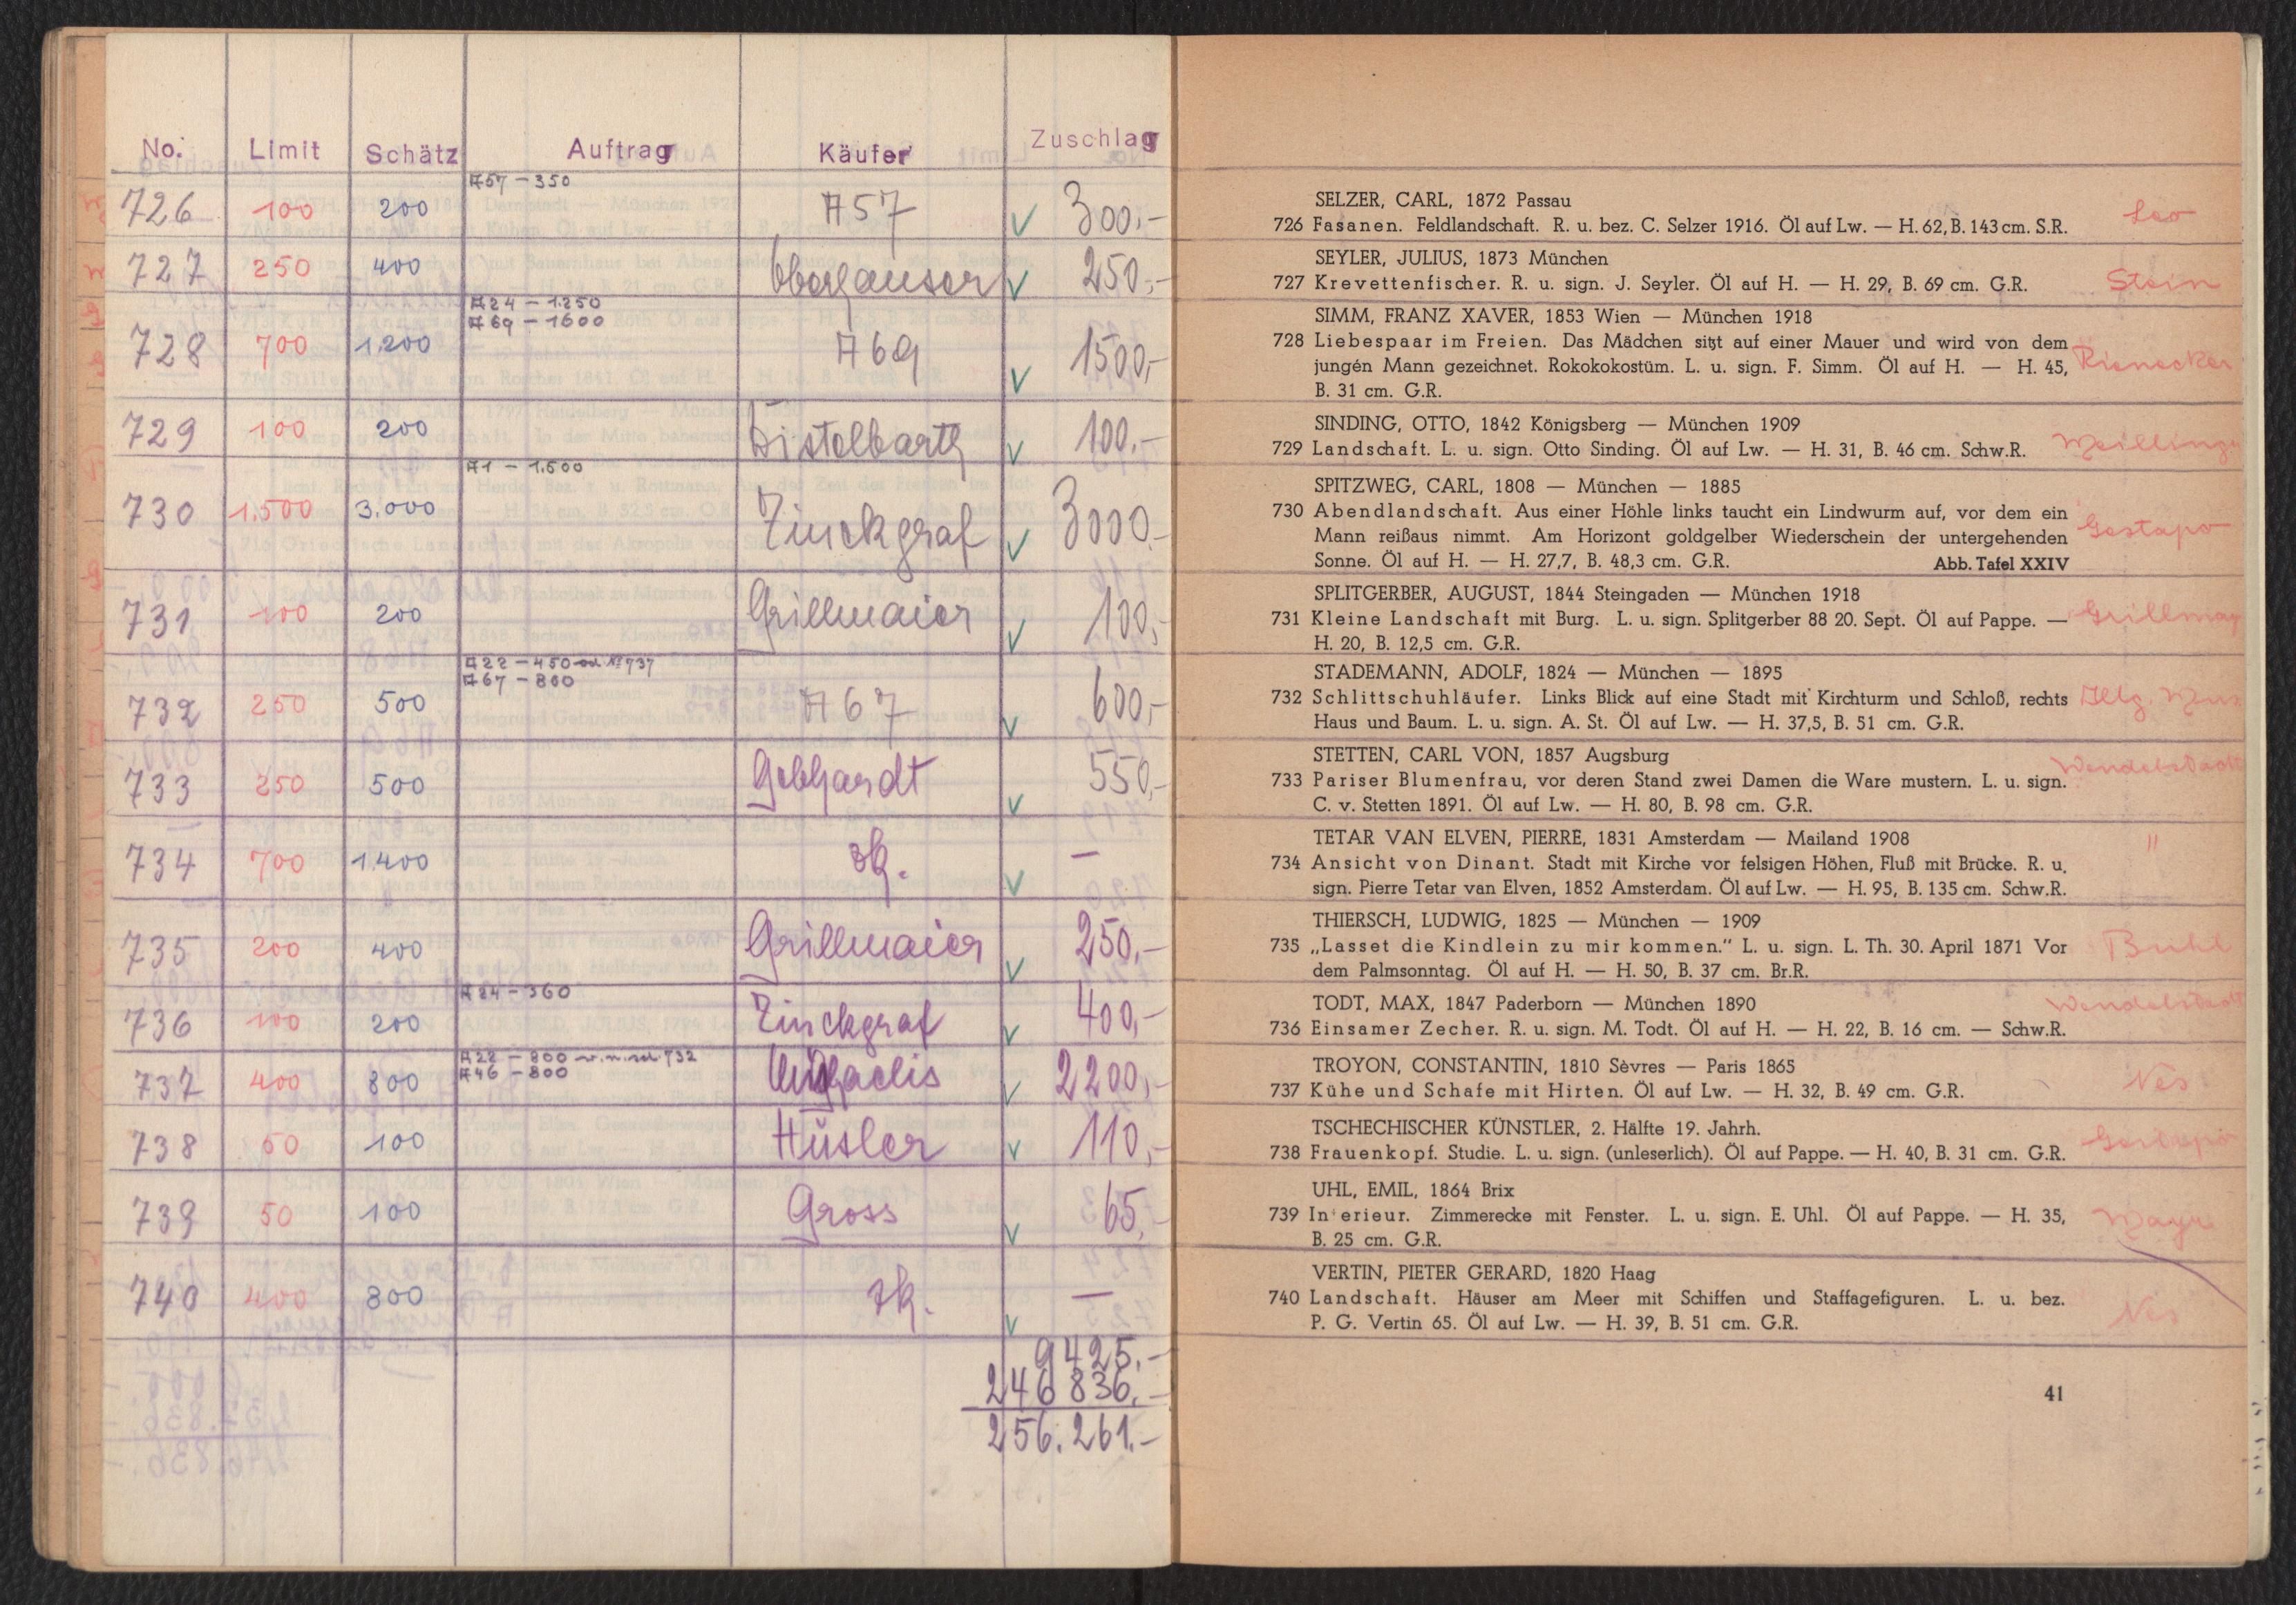 No. Limit Schätz Auftrag Käufer Zuschlag
A57 – 350
726 100 200 A57 300.-
727 250 400 Oberhauser 250.-
A24 – 1.250
A69 – 1600
728 700 1.200 A69 1500,-
729 100 200 Distelbarth 100.-
A1 – 1.600
730 1.500 3.000 Zinckgraf 3000.-
731 100 200 Grillmaier 100,-
A22 – 450 od. № 737
A67 – 800
732 250 500 A67 600,-
733 250 500 Gebhardt 550,-
734 700 1400 zk. –
735 200 400 Grillmaier 250,-
A24 – 360
736 100 200 Zinckgraf 400,-
A22 – 800 732
A46 – 800
737 400 800 2200,-
738 50 100 Hüsler 110,-
739 50 100 Gross 65,-
740 400 800 zk. –
9425.-
246 836.-
256.261.-
SELZER, CARL, 1872 Passau
726 Fasanen. Feldlandschaft. R. u. bez. C. Selzer 1916. Öl auf Lw. — H. 62, B. 143 cm. S.R. Leo
SEYLER, JULIUS, 1873 München
727 Krevettenfischer. R. u. sign. J. Seyler. Öl auf H. — H. 29, B. 69 cm. G.R. Stein
SIMM, FRANZ XAVER, 1853 Wien — München 1918
728 Liebespaar im Freien. Das Mädchen sitzt auf einer Mauer und wird von dem
jungen Mann gezeichnet. Rokokokostüm. L. u. sign. F. Simm. Öl auf H. — H. 45, Rienecker
B. 31 cm. G.R.
SINDING, OTTO, 1842 Königsberg — München 1909
729 Landschaft. L. u. sign. Otto Sinding. Öl auf Lw. — H. 31, B. 46 cm. Schw.R. Meillinger
SPITZWEG, CARL, 1808 — München — 1885
730 Abendlandschaft. Aus einer Höhle links taucht ein Lindwurm auf, vor dem ein
Mann reißaus nimmt. Am Horizont goldgelber Wiederschein der untergehenden Gestapo
Sonne. Öl auf H. — H. 27,7, B. 48,3 cm. G.R. Abb. Tafel XXIV
SPLITGERBER, AUGUST, 1844 Steingaden — München 1918
731 Kleine Landschaft mit Burg. L. u. sign. Splitgerber 88 20. Sept. Öl auf Pappe. — Grillmay
H. 20, B. 12,5 cm. G.R.
STADEMANN, ADOLF, 1824 — München — 1895
732 Schlittschuhläufer. Links Blick auf eine Stadt mit Kirchturm und Schloß, rechts
Haus und Baum. L. u. sign. A. St. Öl auf Lw. — H. 37,5, B. 51 cm. G.R.
STETTEN, CARL VON, 1857 Augsburg Wendelstadt
733 Pariser Blumenfrau, vor deren Stand zwei Damen die Ware mustern. L. u. sign.
C. v. Stetten 1891. Öl auf Lw. — H. 80, B. 98 cm. G.R.
TETAR VAN ELVEN, PIERRE, 1831 Amsterdam — Mailand 1908 "
734 Ansicht von Dinant. Stadt mit Kirche vor felsigen Höhen, Fluß mit Brücke. R. u.
sign. Pierre Tetar van Elven, 1852 Amsterdam. Öl auf Lw. — H. 95, B. 135 cm. Schw.R.
THIERSCH, LUDWIG, 1825 — München — 1909
735 „Lasset die Kindlein zu mir kommen.“ L. u. sign. L. Th. 30. April 1871 Vor Buhl
dem Palmsonntag. Öl auf H. — H. 50, B. 37 cm. Br.R.
TODT, MAX, 1847 Paderborn — München 1890 Wendelstadt
736 Einsamer Zecher. R. u. sign. M. Todt. Öl auf H. — H. 22, B. 16 cm. — Schw.R.
TROYON, CONSTANTIN, 1810 Sèvres — Paris 1865
737 Kühe und Schafe mit Hirten. Öl auf Lw. — H. 32, B. 49 cm. G.R. Nes
TSCHECHISCHER KÜNSTLER, 2. Hälfte 19. Jahrh.
738 Frauenkopf. Studie. L. u. sign. (unleserlich). Öl auf Pappe. — H. 40, B. 31 cm. G.R. Gestapo
UHL, EMIL, 1864 Brix
739 In'erieur. Zimmerecke mit Fenster. L. u. sign. E. Uhl. Öl auf Pappe. — H. 35, Mayr
B. 25 cm. G.R.
VERTIN, PIETER GERARD, 1820 Haag
740 Landschaft. Häuser am Meer mit Schiffen und Staffagefiguren. L. u. bez.
P. G. Vertin 65. Öl auf Lw. — H. 39, B. 51 cm. G.R. Nes
41